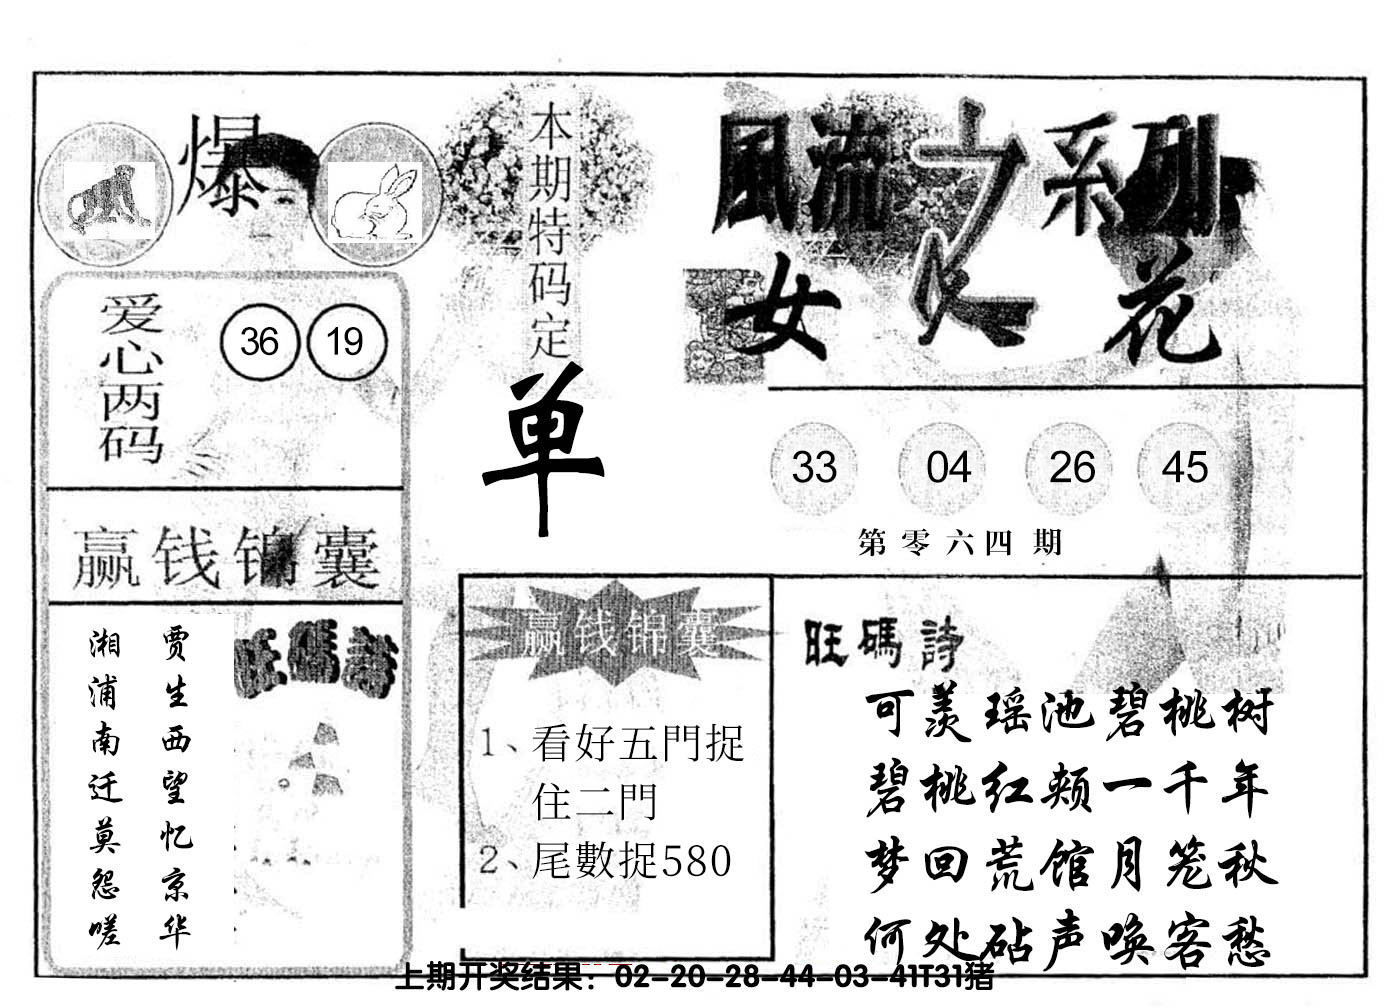 爆
本期特码定
单
風流之系列
女人花
爱心两码
36 19
33 04 26 45
第零六四期
赢钱锦囊
贾生西望忆京华
湘浦南迁莫怨嗟
旺碼詩
赢钱锦囊
1、看好五門捉
住二門
2、尾數捉580
旺碼詩
可羡瑶池碧桃树
碧桃红颊一千年
梦回荒馆月笼秋
何处砧声唤客愁
上期开奖结果：02-20-28-44-03-41T31猪